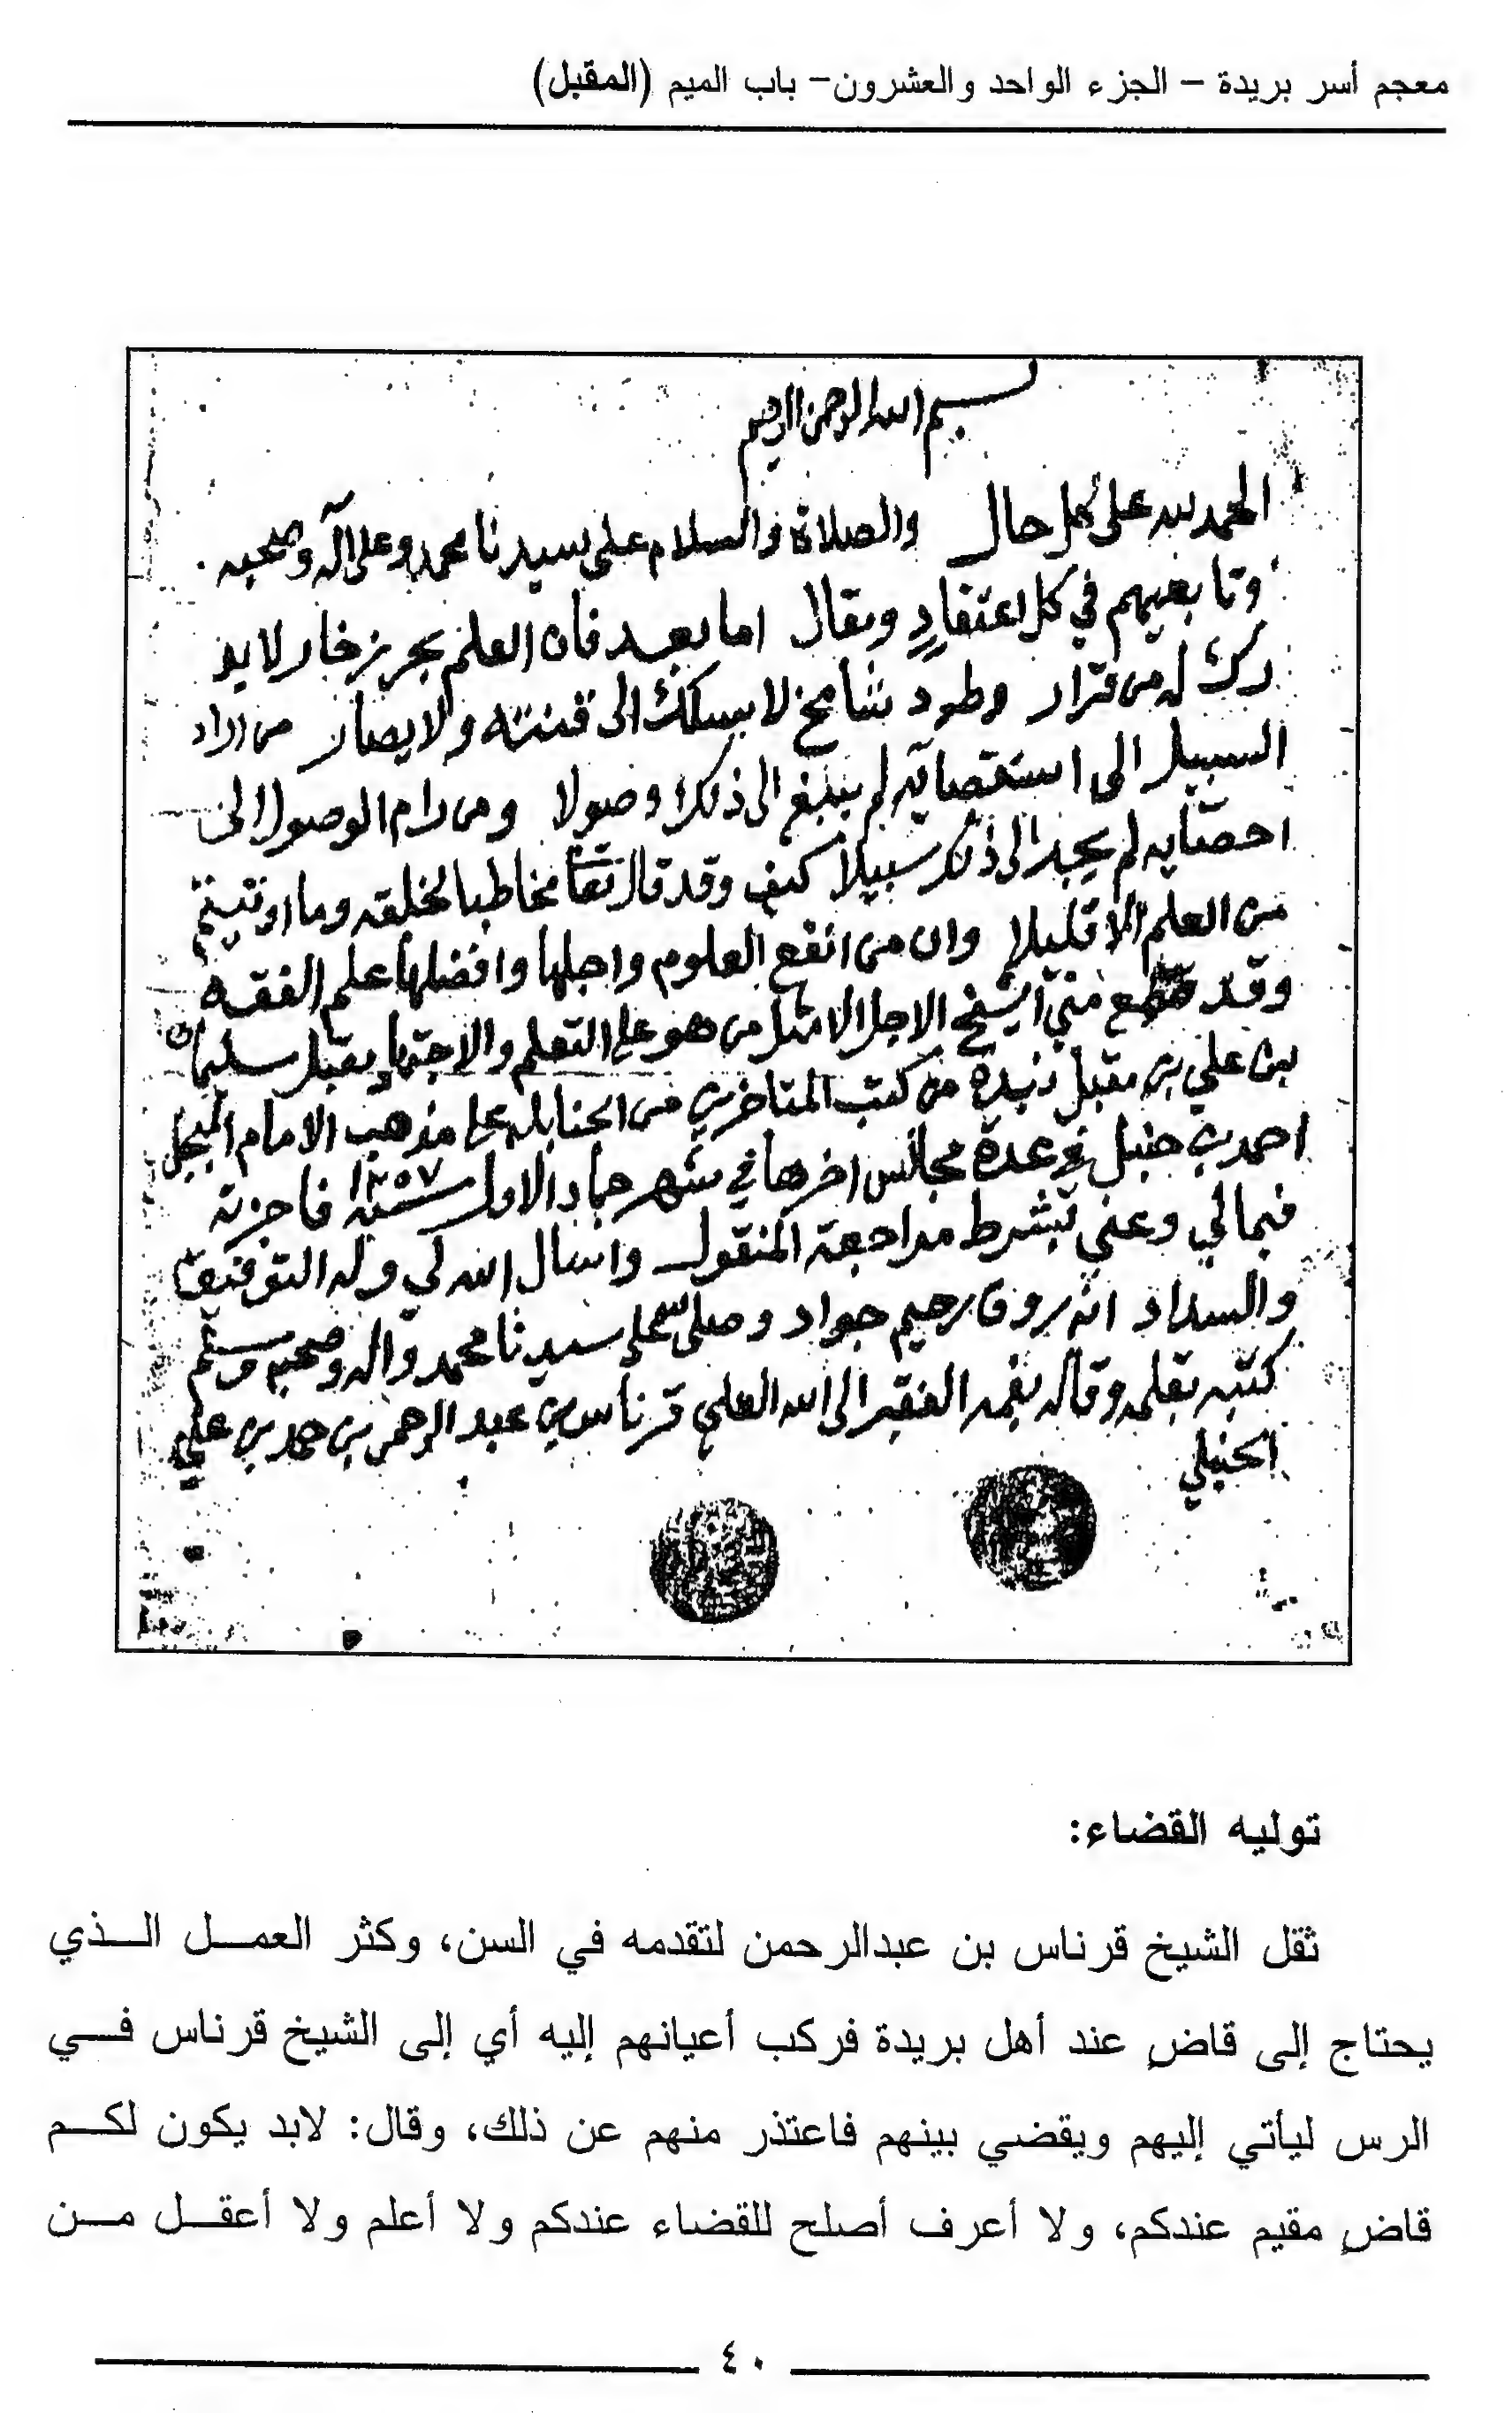 معجم أسر بريدة – الجزء الواحد والعشرون– باب الميم (المقبل)
بسم الله الرحمن الرحيم
الحمد لله على كل حال والصلاة والسلام على سيدنا محمد وعلى آله وصحبه
وتابعيهم في كل اعتقاد ومقال اما بعد فان العلم بحر زخار لا يد
رك له من قرار وطود شامخ لا يسلك الى قنته ولا يصار من اراد
السبيل الى استقصايه لم يبلغ الى ذلك وصولا ومن رام الوصول الى
احصايه لم يجد الى ذلك سبيلا كيف وقد قال تعا مخاطبا لخلقه وما اوتيتم
من العلم الا قليلا وان من انفع العلوم واجلها وافضلها علم الفقه
وقد سمع مني الشيخ الاجل الامثل من هو على التعلم والاجتهاد مقبل سليمان
بن علي بن مقبل نبذة من كتب المتاخرين من الحنابلة على مذهب الامام المبجل
احمد بن حنبل في عدة مجالس اخرها في شهر جماد الاول سنة ١٢٥٧ فاجزته
فيما لي وعني بشرط مراجعة المنقول واسال الله لي وله التوفيق
والسداد انه روف رحيم جواد وصلى الله على سيدنا محمد واله وصحبه وسلم
كتبه بقلمه وقاله بفمه الفقير الى الله العلي قرناس بن عبد الرحمن بن حمد بن علي
الحنبلي
توليه القضاء:
ثقل الشيخ قرناس بن عبدالرحمن لتقدمه في السن، وكثر العمل الذي
يحتاج إلى قاضٍ عند أهل بريدة فركب أعيانهم إليه أي إلى الشيخ قرناس في
الرس ليأتي إليهم ويقضي بينهم فاعتذر منهم عن ذلك، وقال: لابد يكون لكم
قاضٍ مقيم عندكم، ولا أعرف أصلح للقضاء عندكم ولا أعلم ولا أعقل من
٤٠